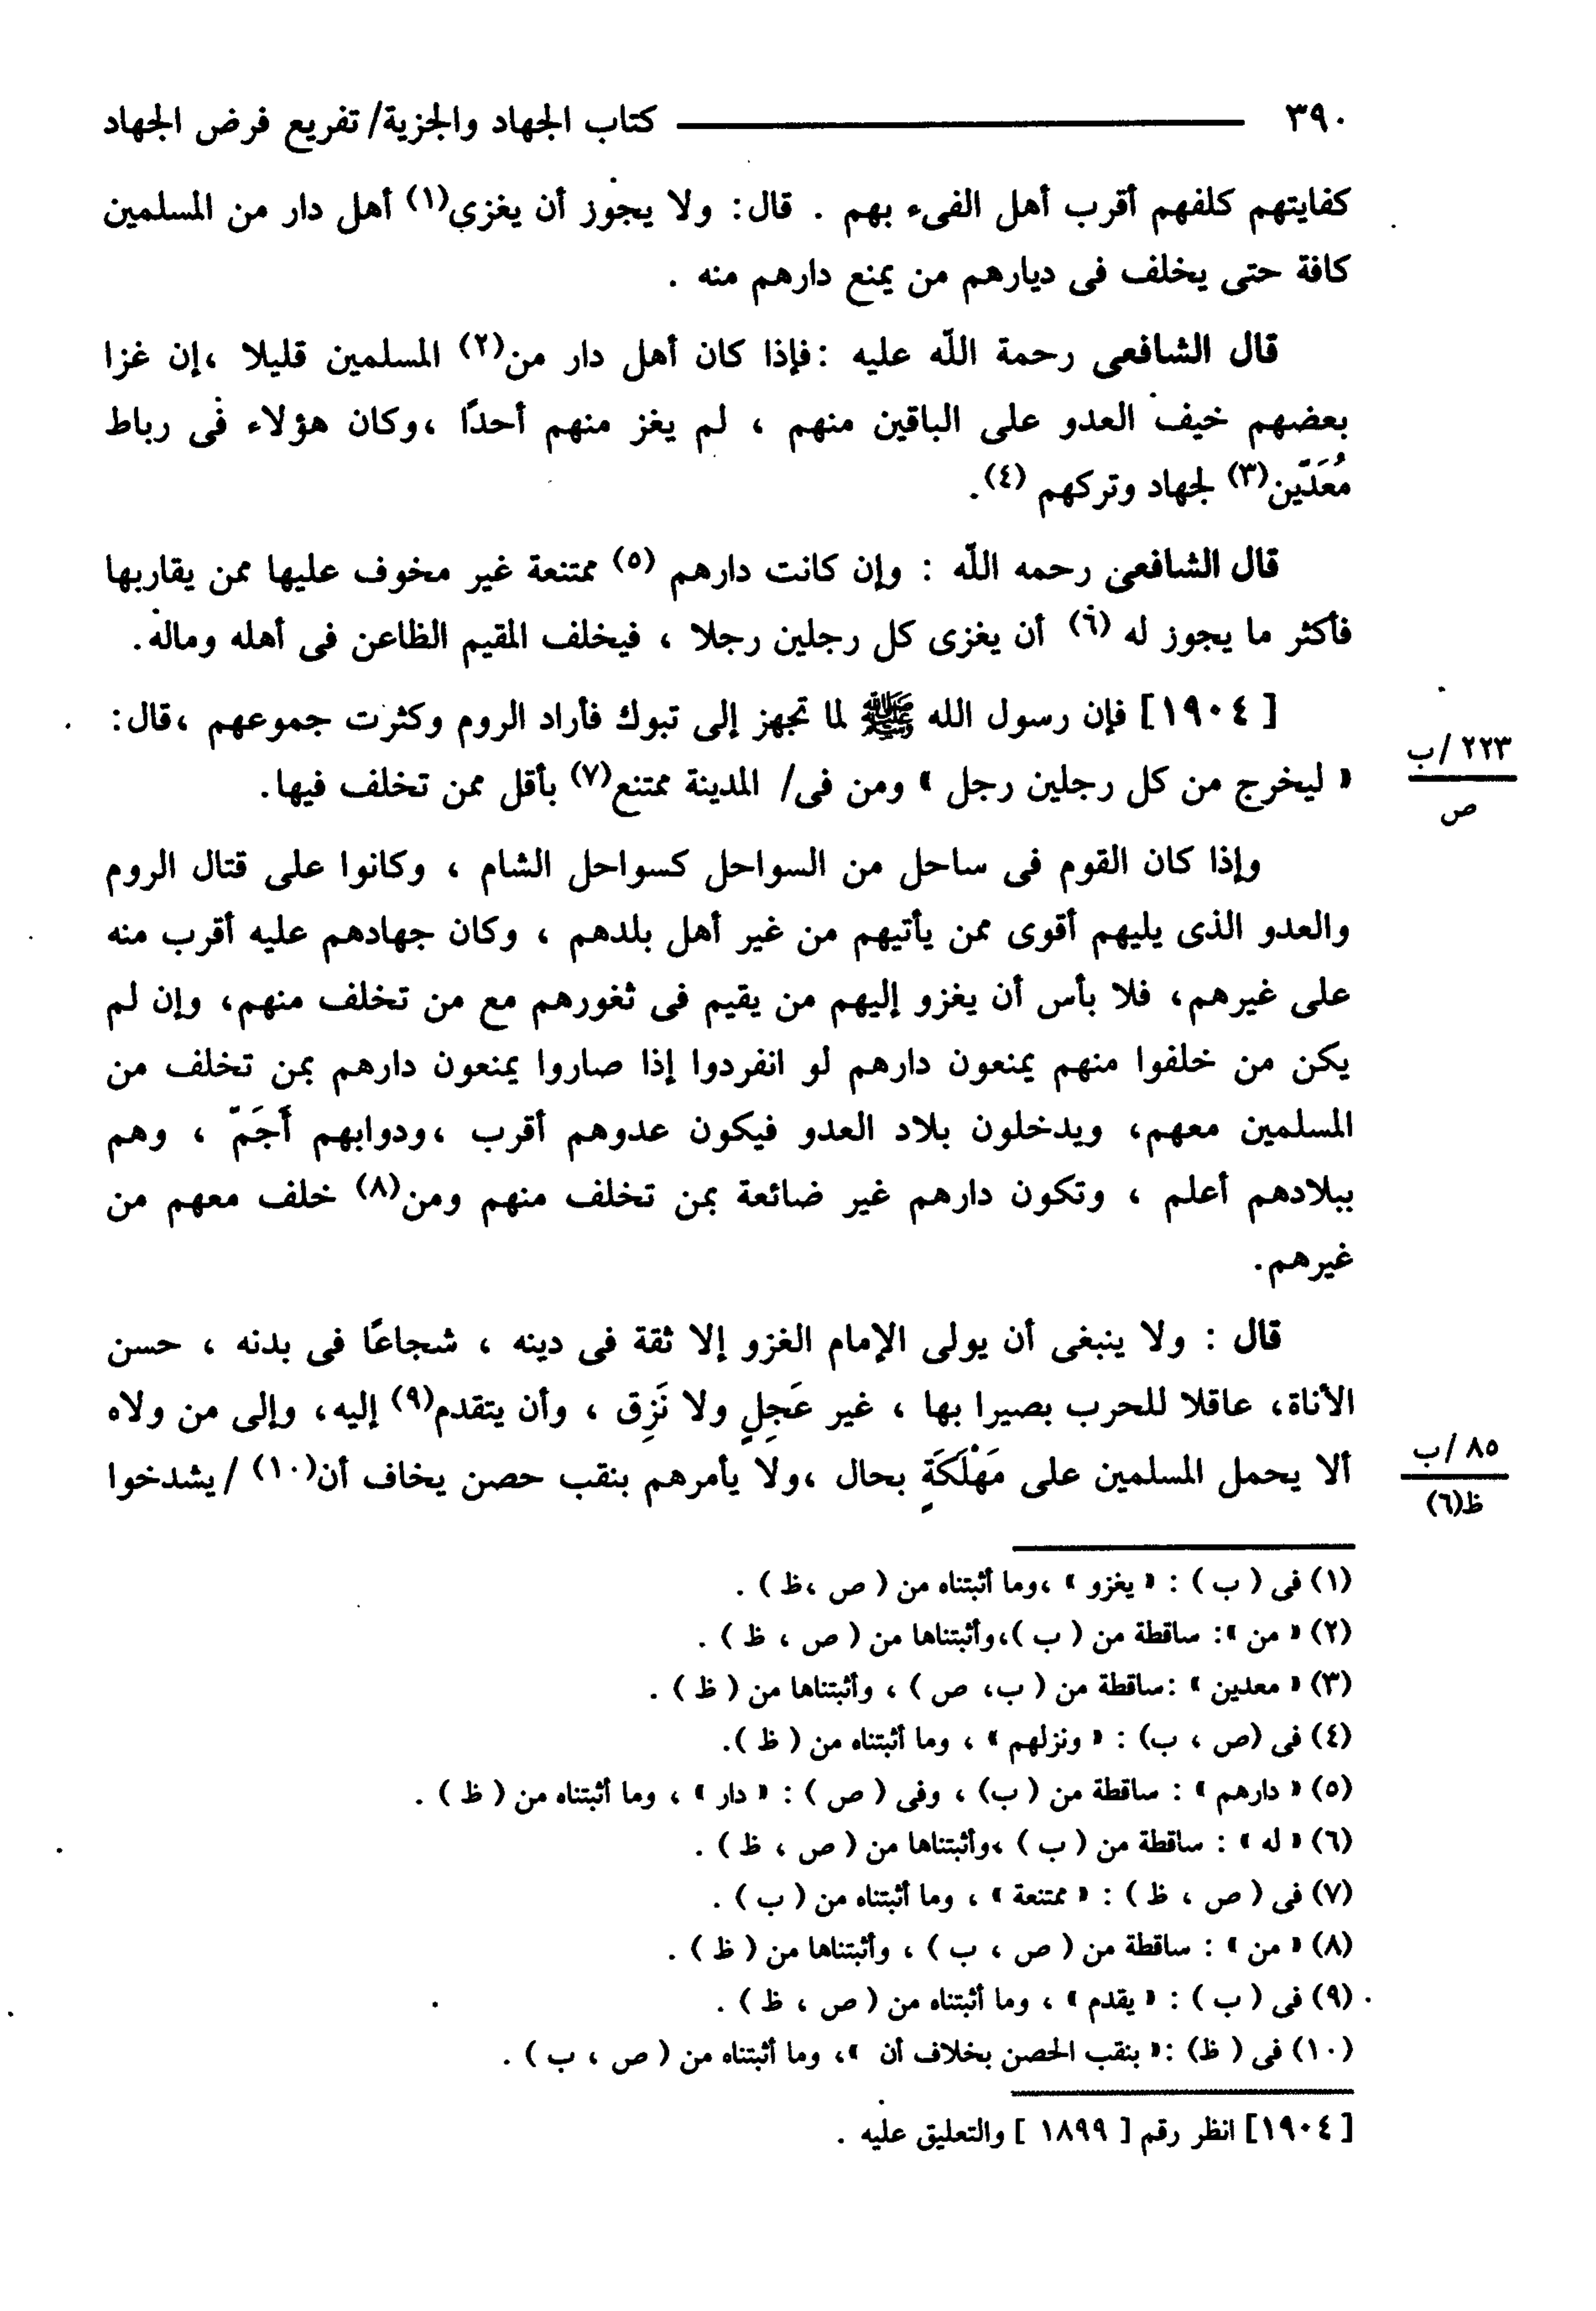 ٣٩٠ كتاب الجهاد والجزية/ تفريع فرض الجهاد
كفايتهم كلفهم أقرب أهل الفىء بهم . قال: ولا يجوز أن يغزى(١) أهل دار من المسلمين
كافة حتى يخلف فى ديارهم من يمنع دارهم منه .
قال الشافعى رحمة اللّه عليه :فإذا كان أهل دار من(٢) المسلمين قليلا ،إن غزا
بعضهم خيف العدو على الباقين منهم ، لم يغز منهم أحدًا ،وكان هؤلاء فى رباط
مُعَدِّين(٣) لجهاد وتركهم (٤).
قال الشافعى رحمه اللّه : وإن كانت دارهم (٥) ممتنعة غير مخوف عليها ممن يقاربها
فأكثر ما يجوز له (٦) أن يغزى كل رجلين رجلا ، فيخلف المقيم الظاعن فى أهله وماله.
[ ١٩٠٤] فإن رسول الله ﷺ لما تجهز إلى تبوك فأراد الروم وكثرت جموعهم ،قال:
« ليخرج من كل رجلين رجل » ومن فى/ المدينة ممتنع(٧) بأقل ممن تخلف فيها.
٢٢٣ /ب
ص
وإذا كان القوم فى ساحل من السواحل كسواحل الشام ، وكانوا على قتال الروم
والعدو الذى يليهم أقوى ممن يأتيهم من غير أهل بلدهم ، وكان جهادهم عليه أقرب منه
على غيرهم، فلا بأس أن يغزو إليهم من يقيم فى ثغورهم مع من تخلف منهم، وإن لم
يكن من خلفوا منهم يمنعون دارهم لو انفردوا إذا صاروا يمنعون دارهم بمن تخلف من
المسلمين معهم، ويدخلون بلاد العدو فيكون عدوهم أقرب ،ودوابهم أَجَمّ ، وهم
ببلادهم أعلم ، وتكون دارهم غير ضائعة بمن تخلف منهم ومن(٨) خلف معهم من
غيرهم.
قال : ولا ينبغى أن يولى الإمام الغزو إلا ثقة فى دينه ، شجاعًا فى بدنه ، حسن
الأناة، عاقلا للحرب بصيرا بها ، غير عَجِلٍ ولا نَزِق ، وأن يتقدم(٩) إليه، وإلى من ولاه
ألا يحمل المسلمين على مَهْلَكَةٍ بحال ،ولا يأمرهم بنقب حصن يخاف أن(١٠) /يشدخوا
٨٥ /ب
ظ(٦)
(١) فى ( ب ) : « يغزو » ،وما أثبتناه من ( ص ،ظ ) .
(٢) « من »: ساقطة من ( ب )،وأثبتناها من ( ص ، ظ ) .
(٣) « معدين » :ساقطة من ( ب، ص ) ، وأثبتناها من ( ظ ) .
(٤) فى (ص ، ب) : « ونزلهم » ، وما أثبتناه من ( ظ ).
(٥) « دارهم » : ساقطة من ( ب) ، وفى ( ص ) : « دار » ، وما أثبتناه من ( ظ ) .
(٦) « له » : ساقطة من ( ب ) ،وأثبتناها من ( ص ، ظ ) .
(٧) فى ( ص ، ظ ) : « ممتنعة » ، وما أثبتناه من ( ب ) .
(٨) « من » : ساقطة من ( ص ، ب ) ، وأثبتناها من ( ظ ) .
(٩) فى ( ب ) : « يقدم » ، وما أثبتناه من ( ص ، ظ ) .
(١٠) فى ( ظ) :« بنقب الحصن بخلاف أن »، وما أثبتناه من ( ص ، ب ) .
[ ١٩٠٤] انظر رقم [ ١٨٩٩ ] والتعليق عليه .